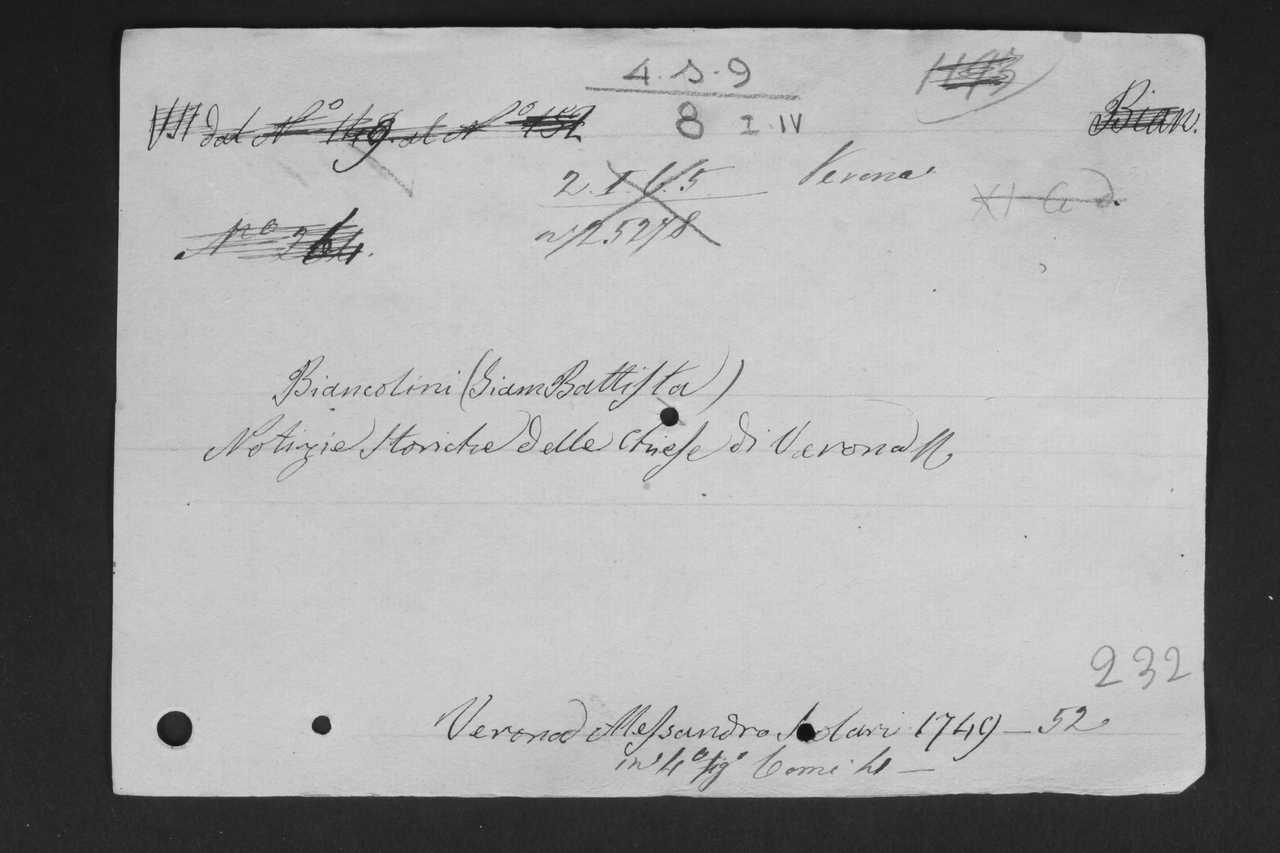 4. S. 9
8 I. IV
dal Nº 149. al Nº 152
Bian.
2. I. 6. 5
nº 25278
Verona
XI G d.
Nº 264.
Biancolini (Giam Battista)
Notizie Storiche delle Chiese di Verona
232
Verona Alessandro Solari 1749 – 52
in 4º fig.º Tomi 4 –